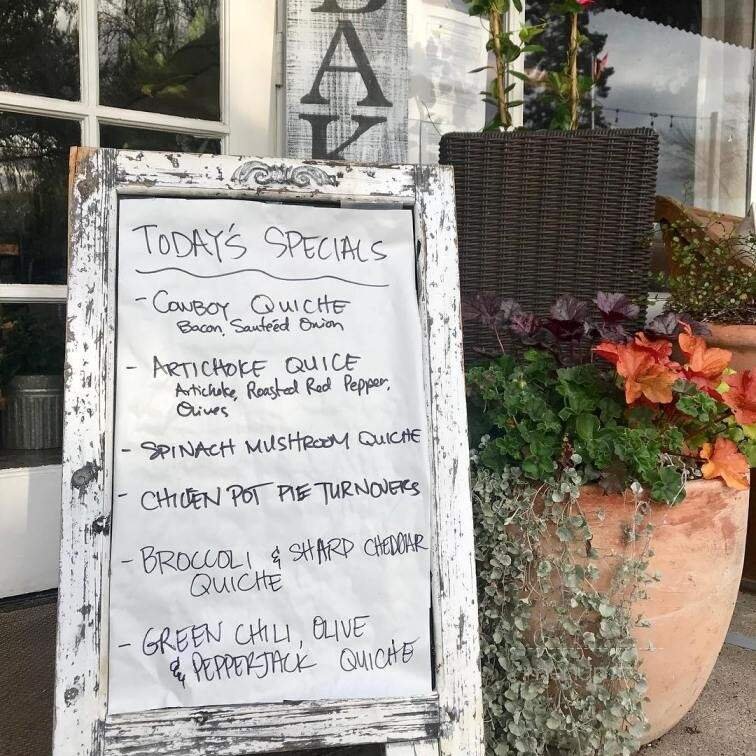 BAK
TODAY'S SPECIALS
- COWBOY QUICHE
Bacon, Sauteéd Onion
- ARTICHOKE QUICE
Artichoke, Roasted Red Pepper,
Olives
- SPINACH MUSHROOM QUICHE
- CHICKEN POT PIE TURNOVERS
- BROCCOLI & SHARD CHEDDAR
QUICHE
- GREEN CHILI, OLIVE
& PEPPERJACK QUICHE